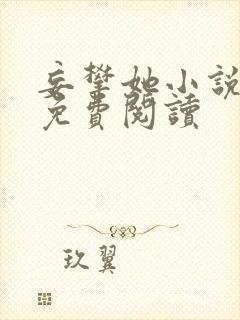 妄攀她小說
免費閱讀
玖翼